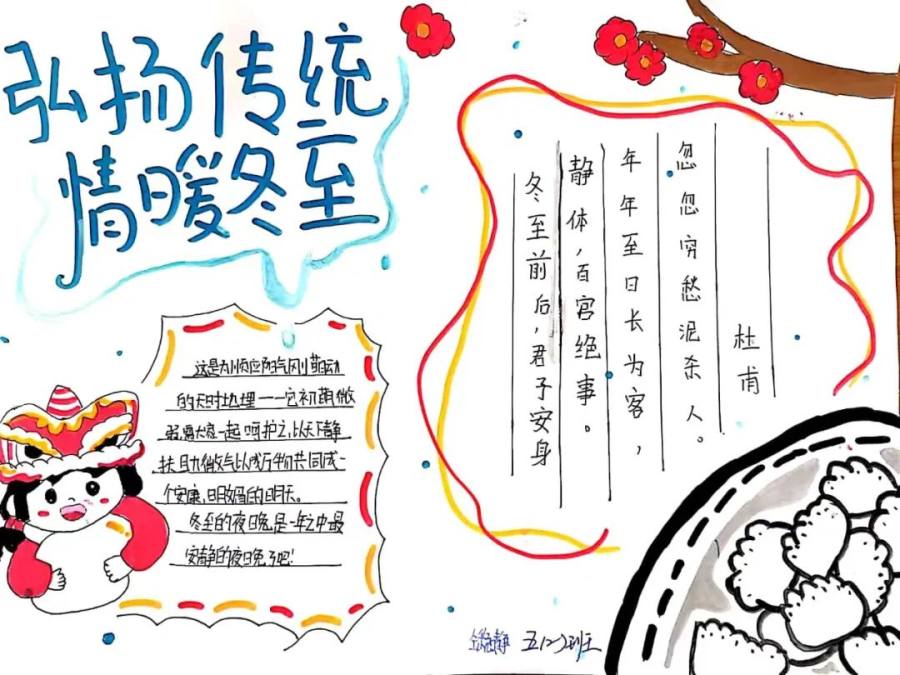 弘扬传统
情暖冬至
这是为顺应阳气刚萌动
的天时地理——它初萌微
弱,需大家一起呵护之,以天下静
扶助微气以成万物共同成一
个安康,明媚的明天。
冬至的夜晚,是一年之中最
安静的夜晚了吧!
冬至前后,君子安身
静体,百宫绝事。
年年至日长为客,
忽忽穷愁泥杀人。
杜甫
静 五(2)班